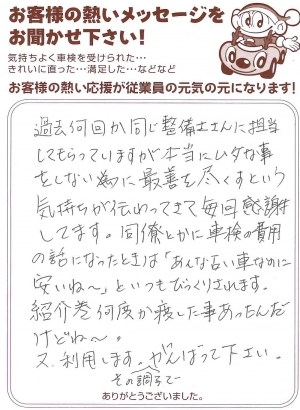 お客様の熱いメッセージを
お聞かせ下さい!
気持ちよく車検を受けられた…
きれいに直った…満足した…などなど
お客様の熱い応援が従業員の元気の元になります!
過去何回か同じ整備士さんに担当
してもらっていますが本当にムダな事
をしない為に最善を尽くすという
気持ちが伝わってきて毎回感謝
してます。同僚とかに車検の費用
の話になったときは「あんな古い車なのに
安いね〜」といつもびっくりされます。
紹介巻何度か渡した事あったんだ
けどね〜。
又、利用します。がんばって下さい。
その調子で
ありがとうございました。